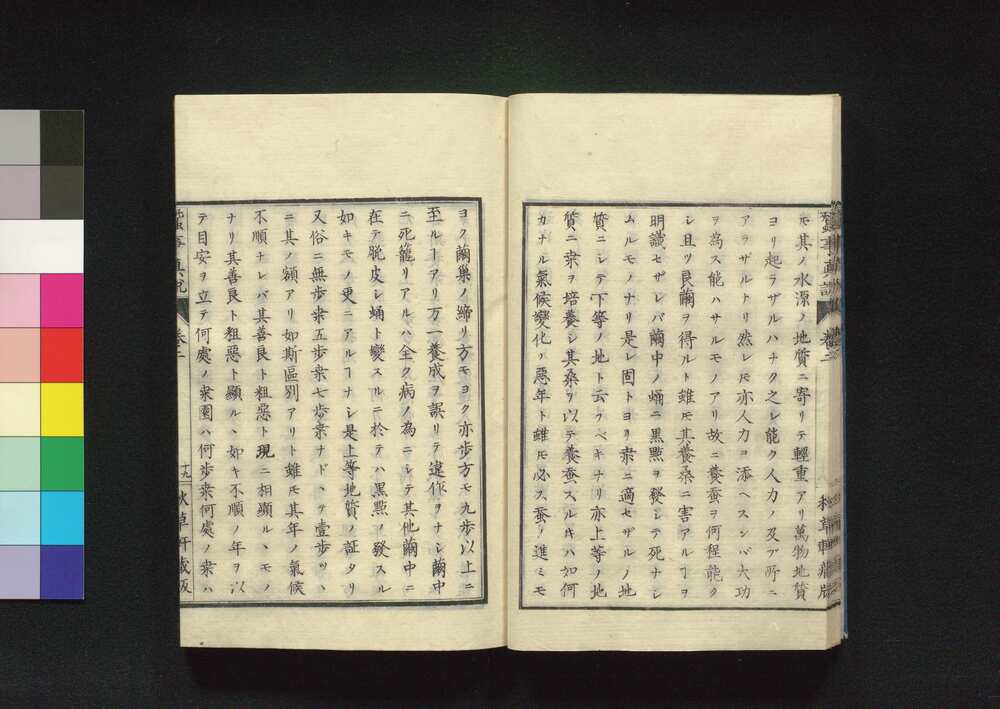 モ其ノ水源ノ地質ニ寄リテ輕重アリ萬物地質
ヨリ起ラザルハナク之レ能ク人力ノ及ブ所ニ
アラザルトリ然レ𪜈亦人力ヲ添ヘスンバ大功
ヲ為ス能ハサルモノアリ故ニ養蚕ヲ何程能ク
シ且ツ良繭ヲ得ルト雖𪜈其養桑ニ害アルヿヲ
明識セザレバ繭中ノ蛹ニ黒㸃ヲ發シテ死ナシ
ムルモノナリ是レ固トヨリ桒ニ適セザルノ地
質ニシテ下等ノ地ト云ウベキナリ亦上等ノ地
質ニ桒ヲ培養シ其桑ヲ以テ養蚕スルキハ如何
カナル氣候變化ノ惡年ト雖𪜈必ス蚕ノ進ミモ
ヨク繭巢ノ締リ方モヨク亦歩方モ九歩以上ニ
至ルヿアリ万一養成ヲ誤リテ違作ヲナシ繭中
ニ死籠リアルハ全ク病ノ為ニシテ其他繭中ニ
在テ脱皮シ蛹ト變スルニ於テハ黒㸃ノ發スル
如キモノ更ニアルヿナシ是上等地質ノ証タリ
又俗ニ無歩桒五歩桒七歩桒ナドヽヲ壹歩ツヽ
ニ其ノ額アリ如斯區別アリト雖𪜈其年ノ氣候
不順ナレバ其善良ト粗惡ト現ニ相顯ルヽモノ
ナリ其善良ト粗惡ト顯ルヽ如キ不順ノ年ヲ以
テ目安ヲ立テ何處ノ桒園ハ何歩桒何處ノ桒ハ
卷二
十九
秋草軒蔵版